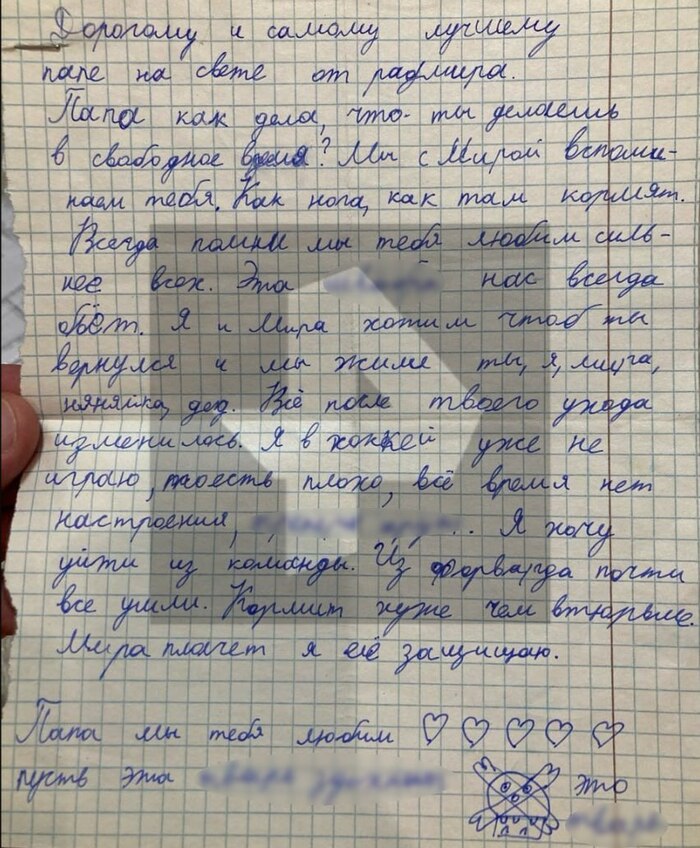 Дорогому и самому лучшему
папе на свете от радмира.
Папа как дела, что ты делаешь
в свободное время? Мы с Мирой вспоми-
наем тебя. Как нога, как там кормят.
Всегда помни мы тебя любим силь-
нее всех. Эта нас всегда
бьёт. Я и Мира хотим чтоб ты
вернулся и мы жили ты, я,
няняйка, дед. Всё после твоего ухода
изменилось. Я в хоккей уже не
играю, тоесть плохо, всё время нет
настроения, ... Я хочу
уйти из команды. Из форварда почти
все ушли. Кормит хуже чем втюрьме.
Мира плачет я её защищаю.
Папа мы тебя любим ♡ ♡ ♡ ♡ ♡
пусть эта
это